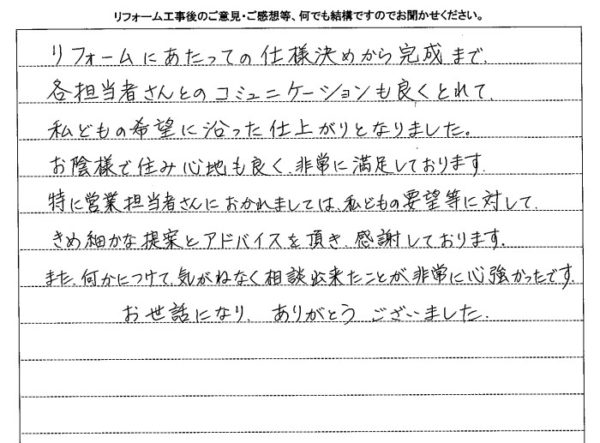 リフォーム工事後のご意見・ご感想等、何でも結構ですのでお聞かせください。
リフォームにあたっての仕様決めから完成まで、
各担当者さんとのコミュニケーションも良くとれて、
私どもの希望に沿った仕上がりとなりました。
お陰様で住み心地も良く、非常に満足しております。
特に営業担当者さんにおかれましては、私どもの要望等に対して、
きめ細かな提案とアドバイスを頂き、感謝しております。
また、何かにつけて、気がねなく相談出来たことが、非常に心強かったです。
お世話になり、ありがとうございました。